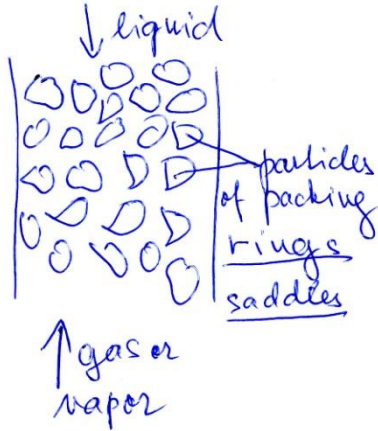 liquid
particles
of packing
rings
saddles
gas or
vapor